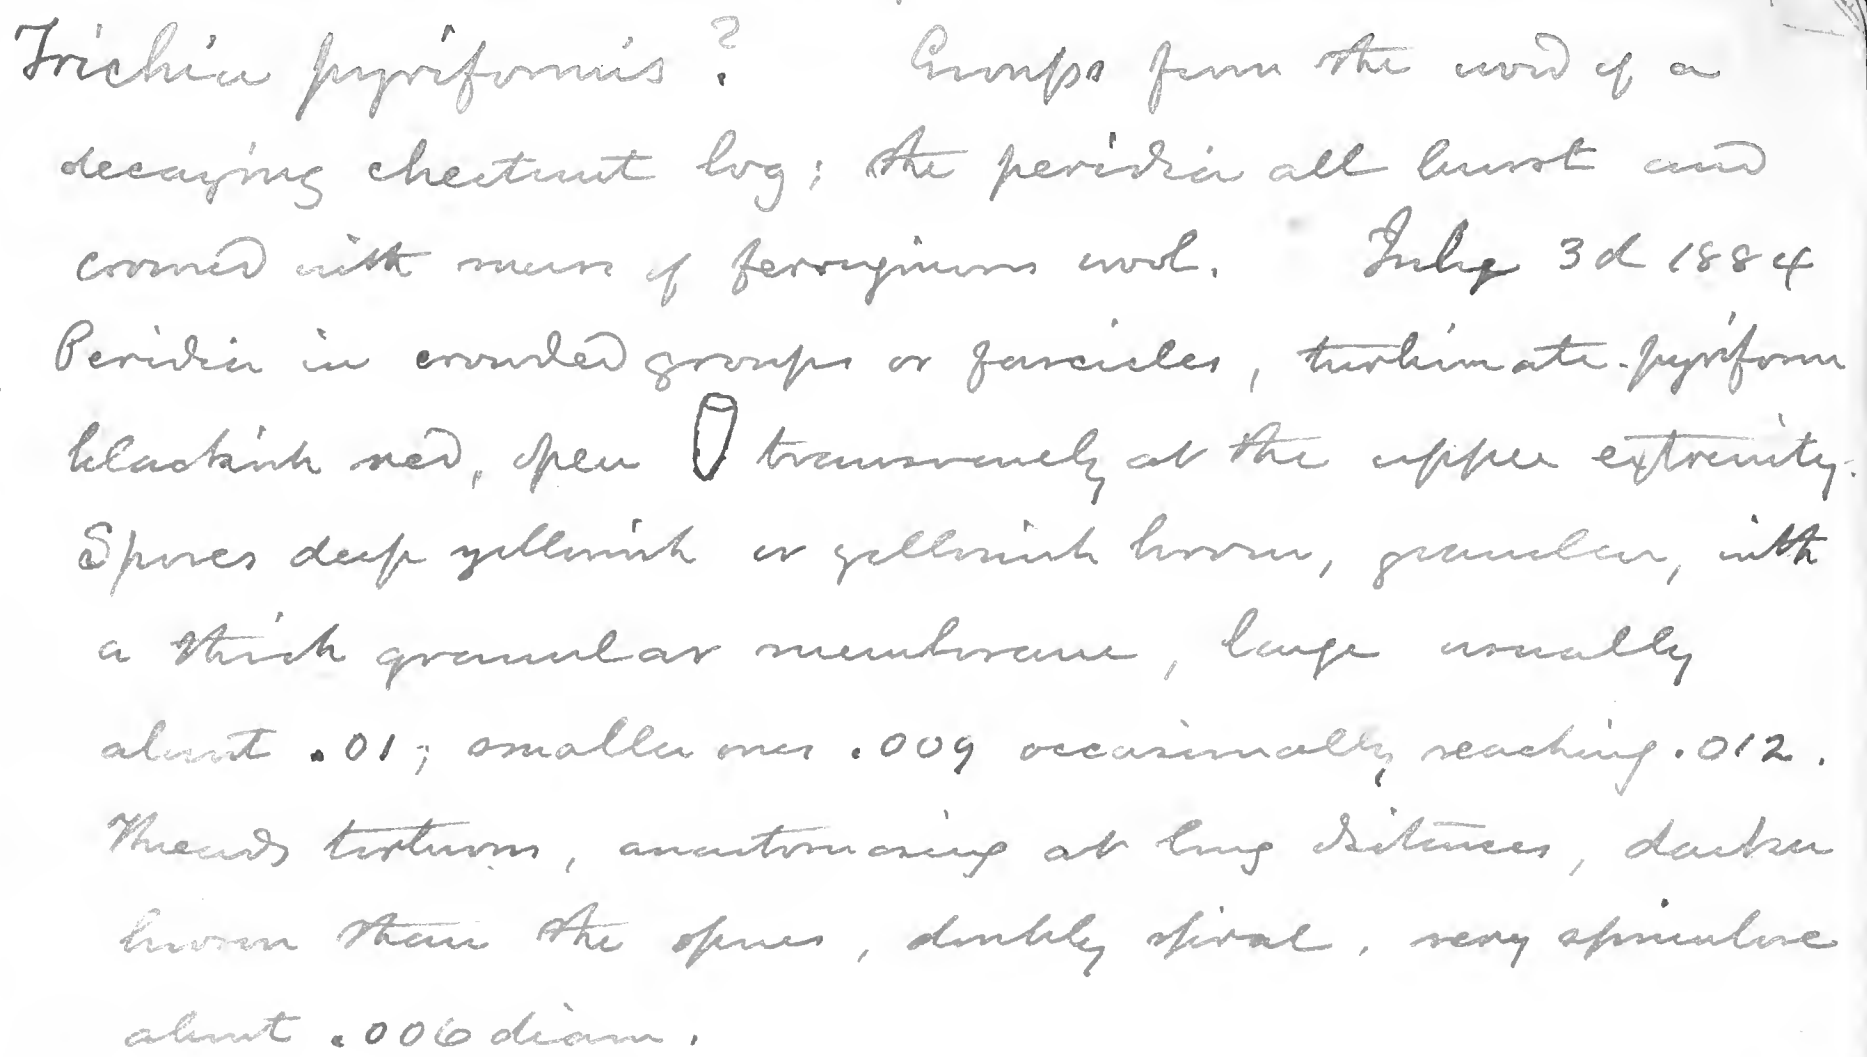 Trichia pyriformis? Groups from the wood of a
decaying chestnut log; the peridia all burst and
crowned with mass of ferruginous wool. July 3d 1884
Peridia in crowded groups or fascicles, turbinate-pyriform
blackish red, open transversely at the upper extremity.
Spores deep yellowish or yellowish brown, granular, with
a thick granular membrane, large usually
about .01; smaller ones .009 occasionally reaching .012.
Threads tortuous, anastomosing at long distances, darker
brown than the spores, doubly spiral, very spinulose
about .006 diam.